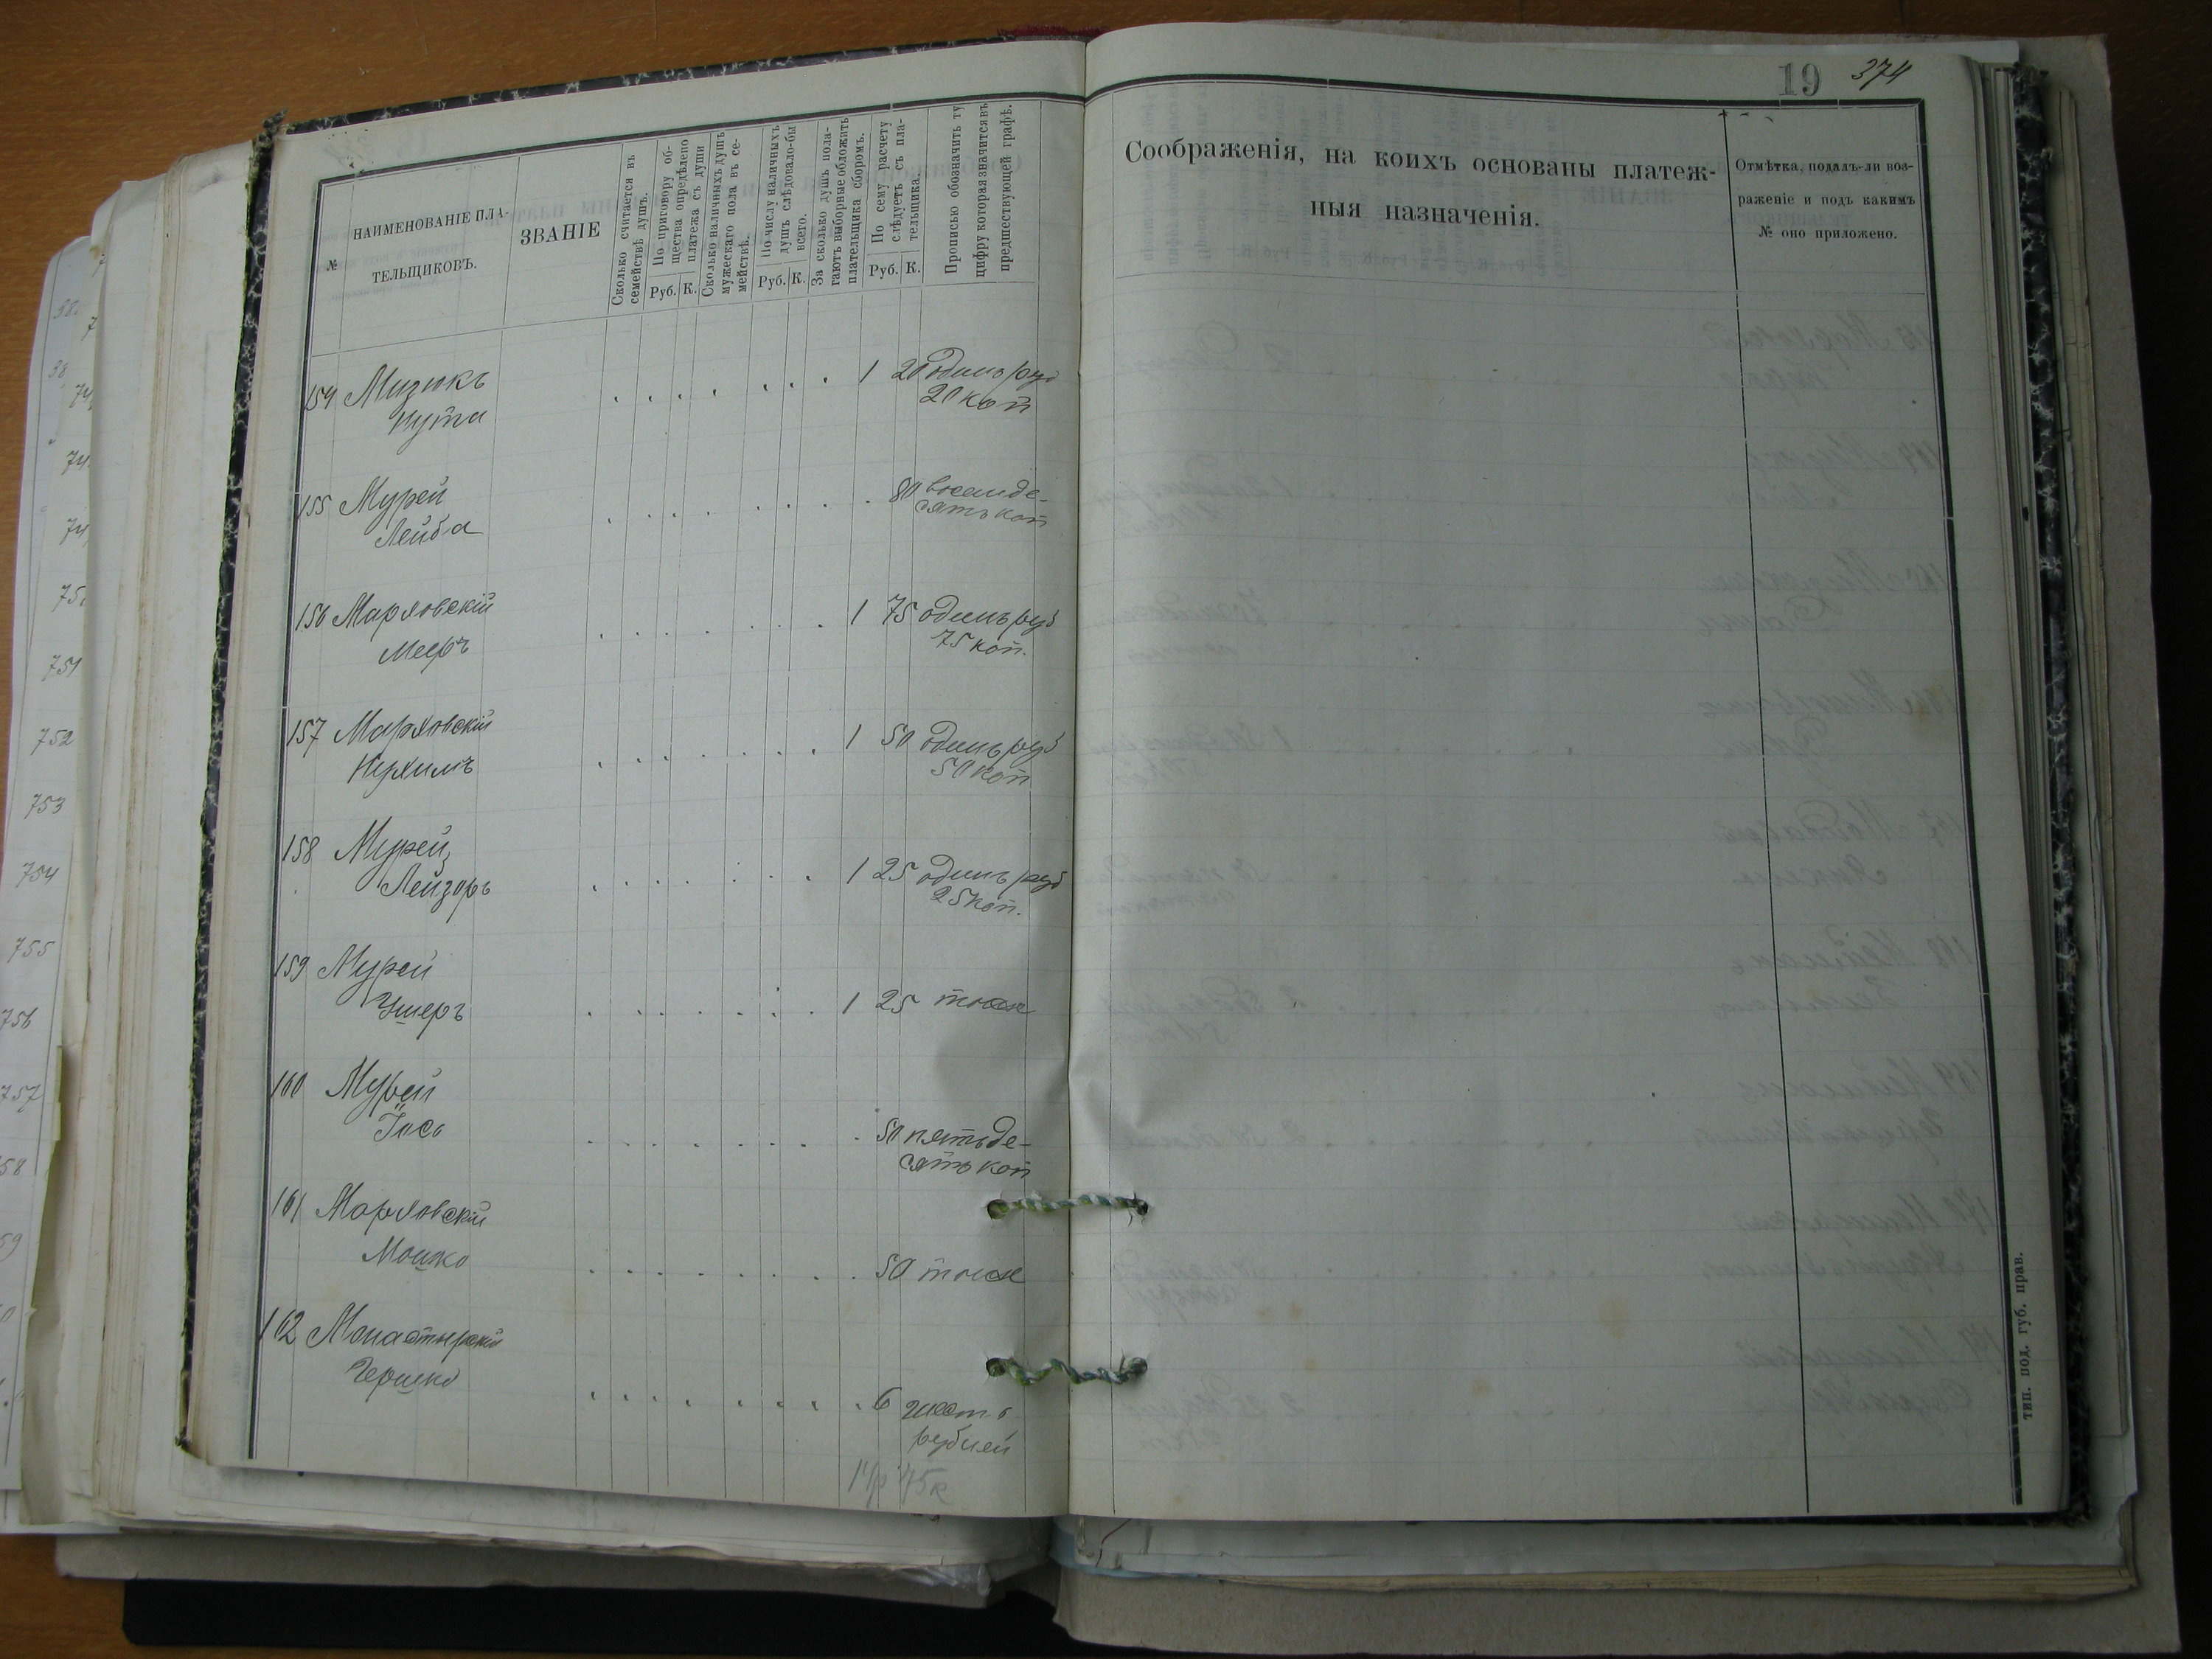 19 374
№
НАИМЕНОВАНІЕ ПЛА-
ТЕЛЬЩИКОВЪ.
ЗВАНІЕ
Сколько считается въ
семействѣ душъ.
По приговору об-
щества опредѣлено
платежа съ души
Руб. К.
Сколько наличныхъ душъ
мужескаго пола въ се-
мействѣ.
По числу наличныхъ
душъ слѣдовало-бы
всего.
Руб. К.
За сколько душъ пола-
гаютъ выборные обложить
плательщика сборомъ.
По сему расчету
слѣдуетъ съ пла-
тельщика.
Руб. К.
Прописью обозначить ту
цифру которая значится въ
предшествующей графѣ.
Соображенія, на коихъ основаны платеж-
ныя назначенія.
Отмѣтка, подалъ-ли воз-
раженіе и подъ какимъ
№ оно приложено.
154 Мизюкъ 1 20 одинъ руб
Нута 20 коп
155 Мурей 80 восемде-
Лейба сять коп
156 Марховскій 1 75 одинъ руб
Мееръ 75 коп.
157 Марховскій 1 50 одинъ руб
Нухимъ 50 коп
158 Мурей
Лейзоръ 1 25 одинъ руб
25 коп.
159 Мурей
Ушеръ 1 25 тоже
160 Мурей
Іось 50 пятьде-
сять коп
161 Марховскій
Мошко 50 тоже
162 Монастырскій
Гершко 6 шесть
рублей
75 к
тип. под. губ. прав.
752
753
754
755
756
757